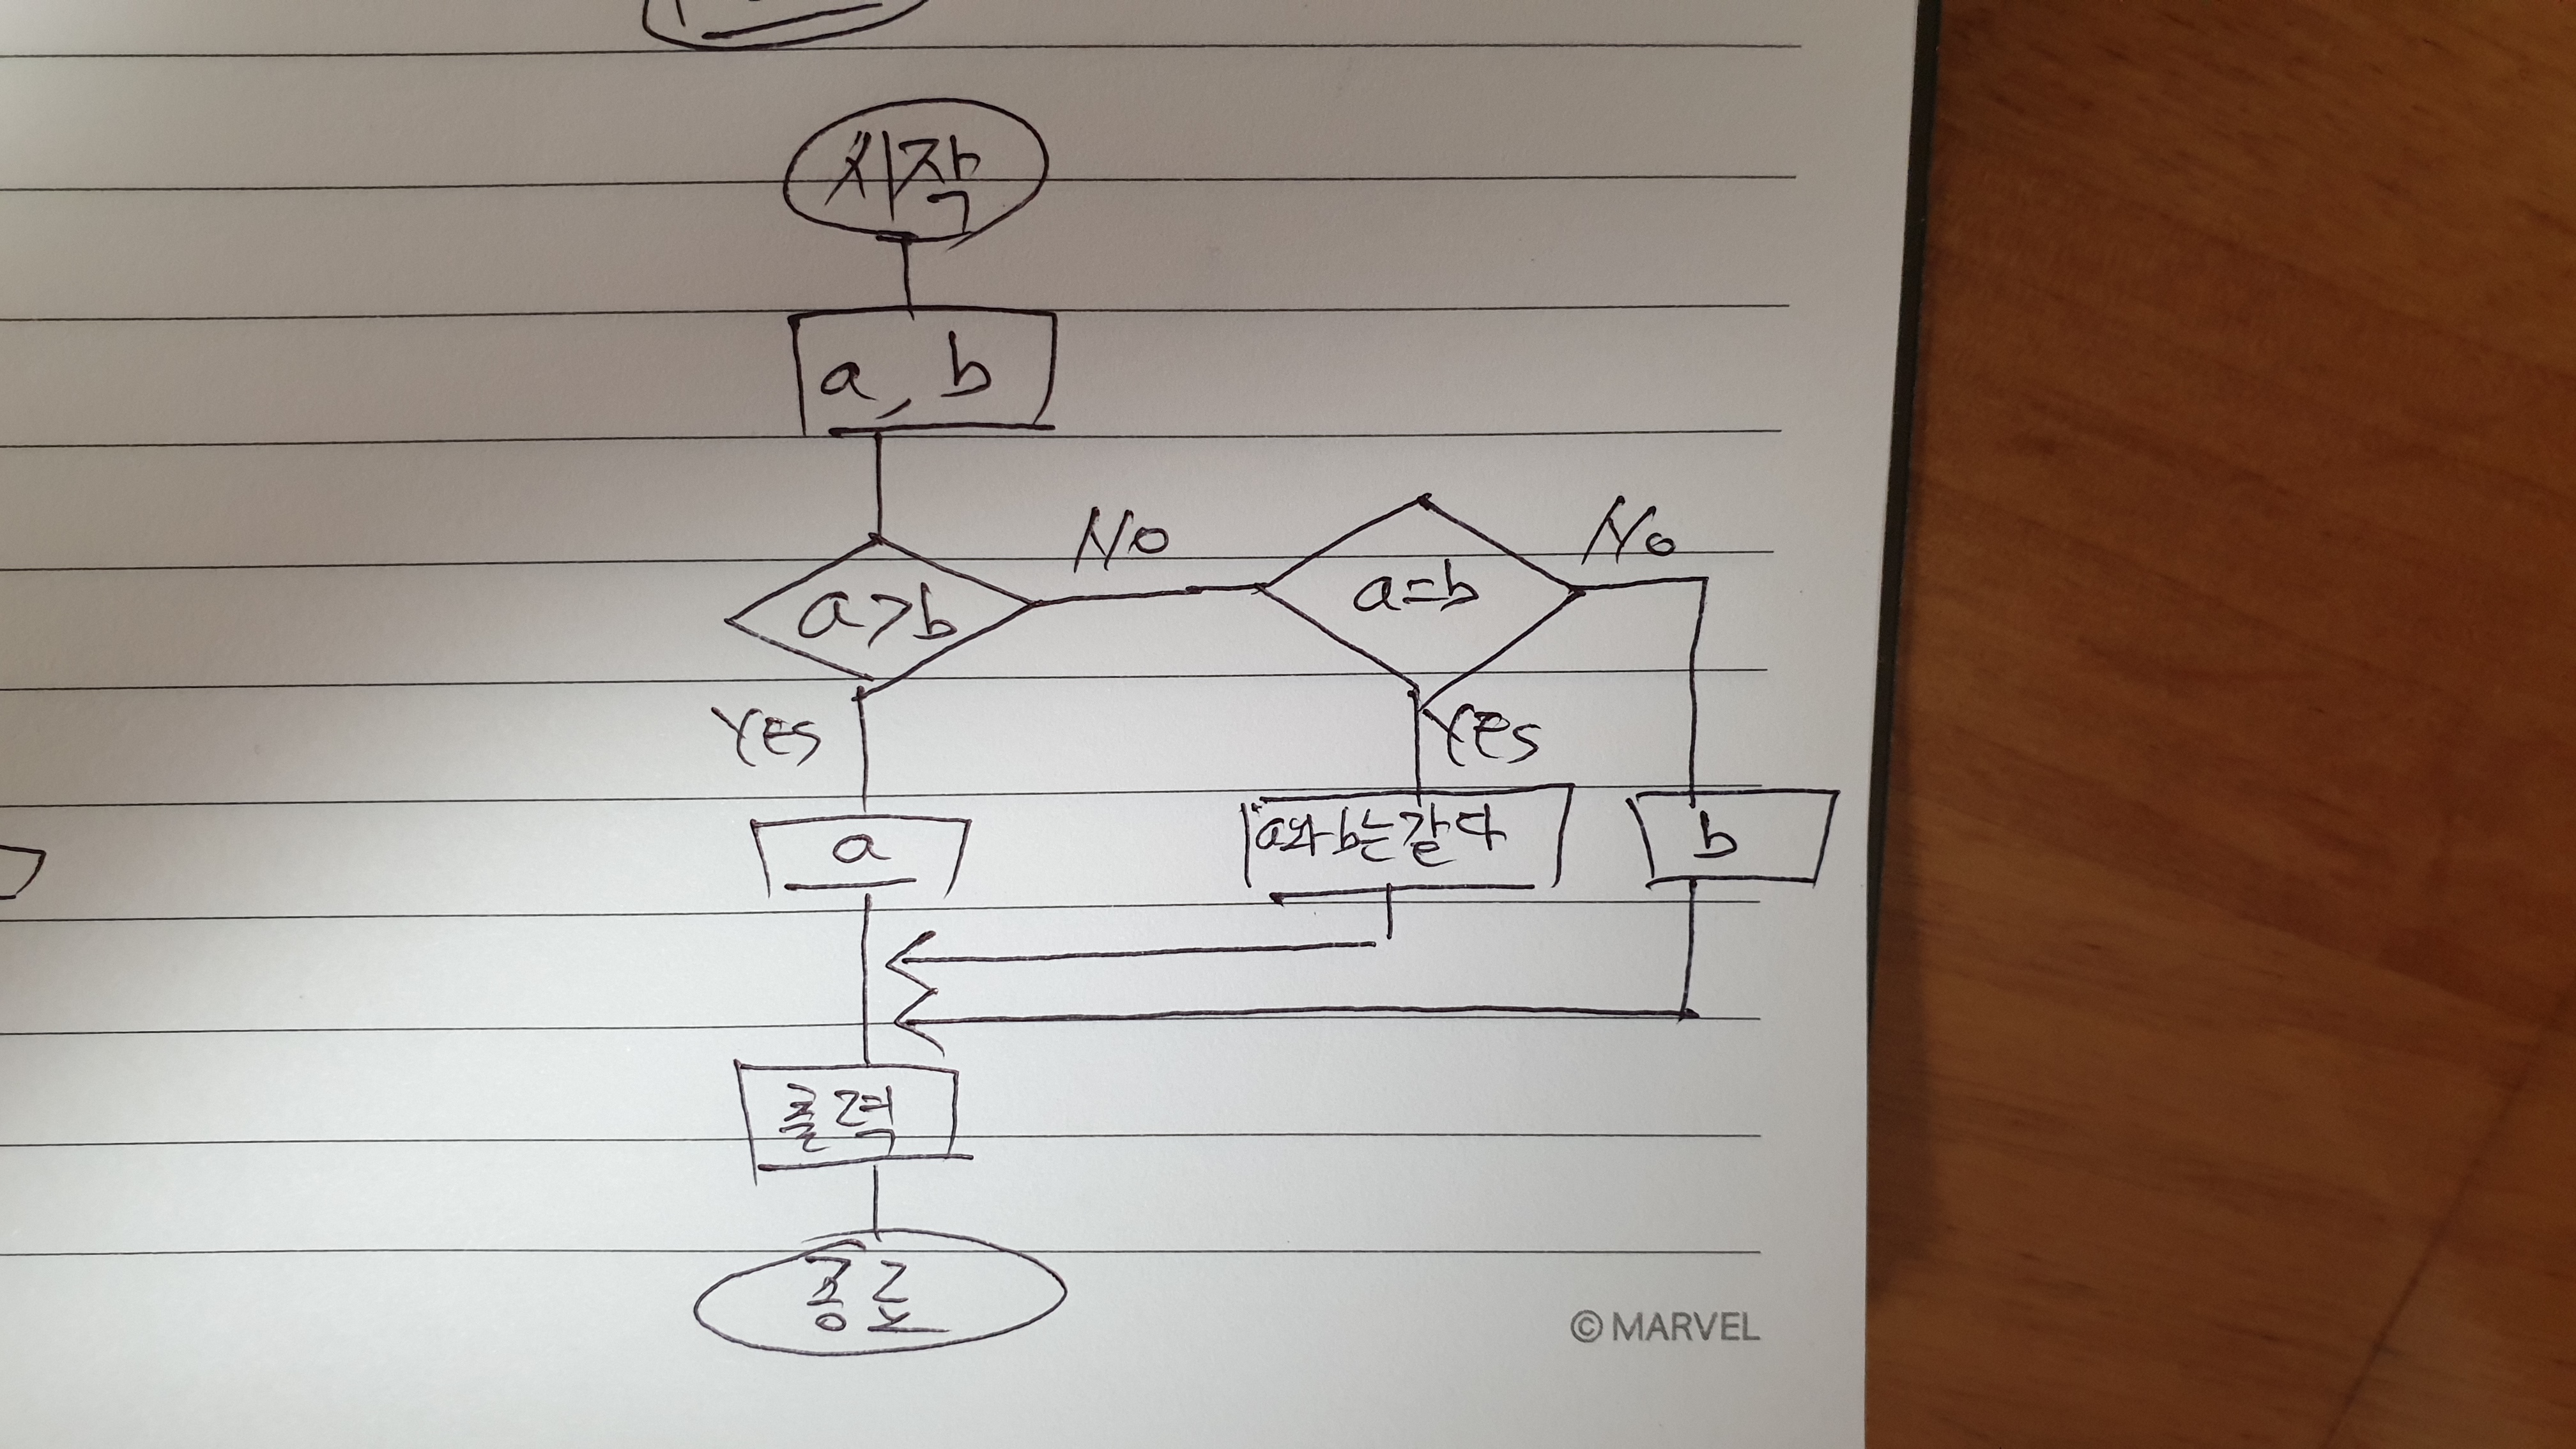 시작
a, b
a>b
NO
a=b
No
YES
YES
a
"a와 b는 같다
b
출력
종료
© MARVEL